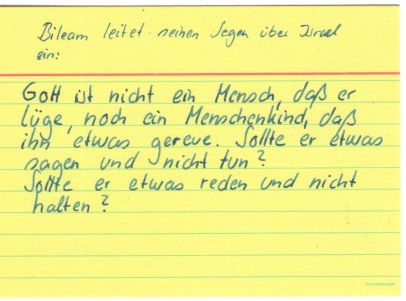 Bileam leitet seinen Segen über Israel
ein:
Gott ist nicht ein Mensch, daß er
lüge, noch ein Menschenkind, daß
ihn etwas gereue. Sollte er etwas
sagen und nicht tun?
Sollte er etwas reden und nicht
halten?